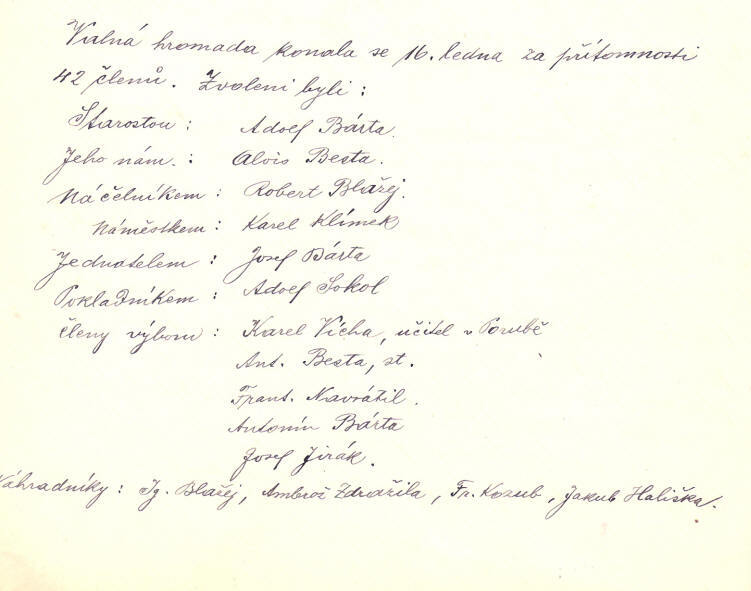 Valná hromada konala se 16. ledna za přítomnosti
42 členů. Zvoleni byli :
Starostou : Adolf Bárta.
Jeho nám. : Alois Besta.
Náčelníkem : Robert Blažej.
Náměstkem : Karel Klímek
Jednatelem : Josef Bárta
Pokladníkem : Adolf Sokol
členy výboru : Karel Vícha, učitel v Porubě
Ant. Besta, st.
Frant. Navrátil.
Antonín Bárta
Josef Jirák.
Náhradníky : Ig. Blažej, Ambrož Zdražila, Fr. Kozub, Jakub Hališka.